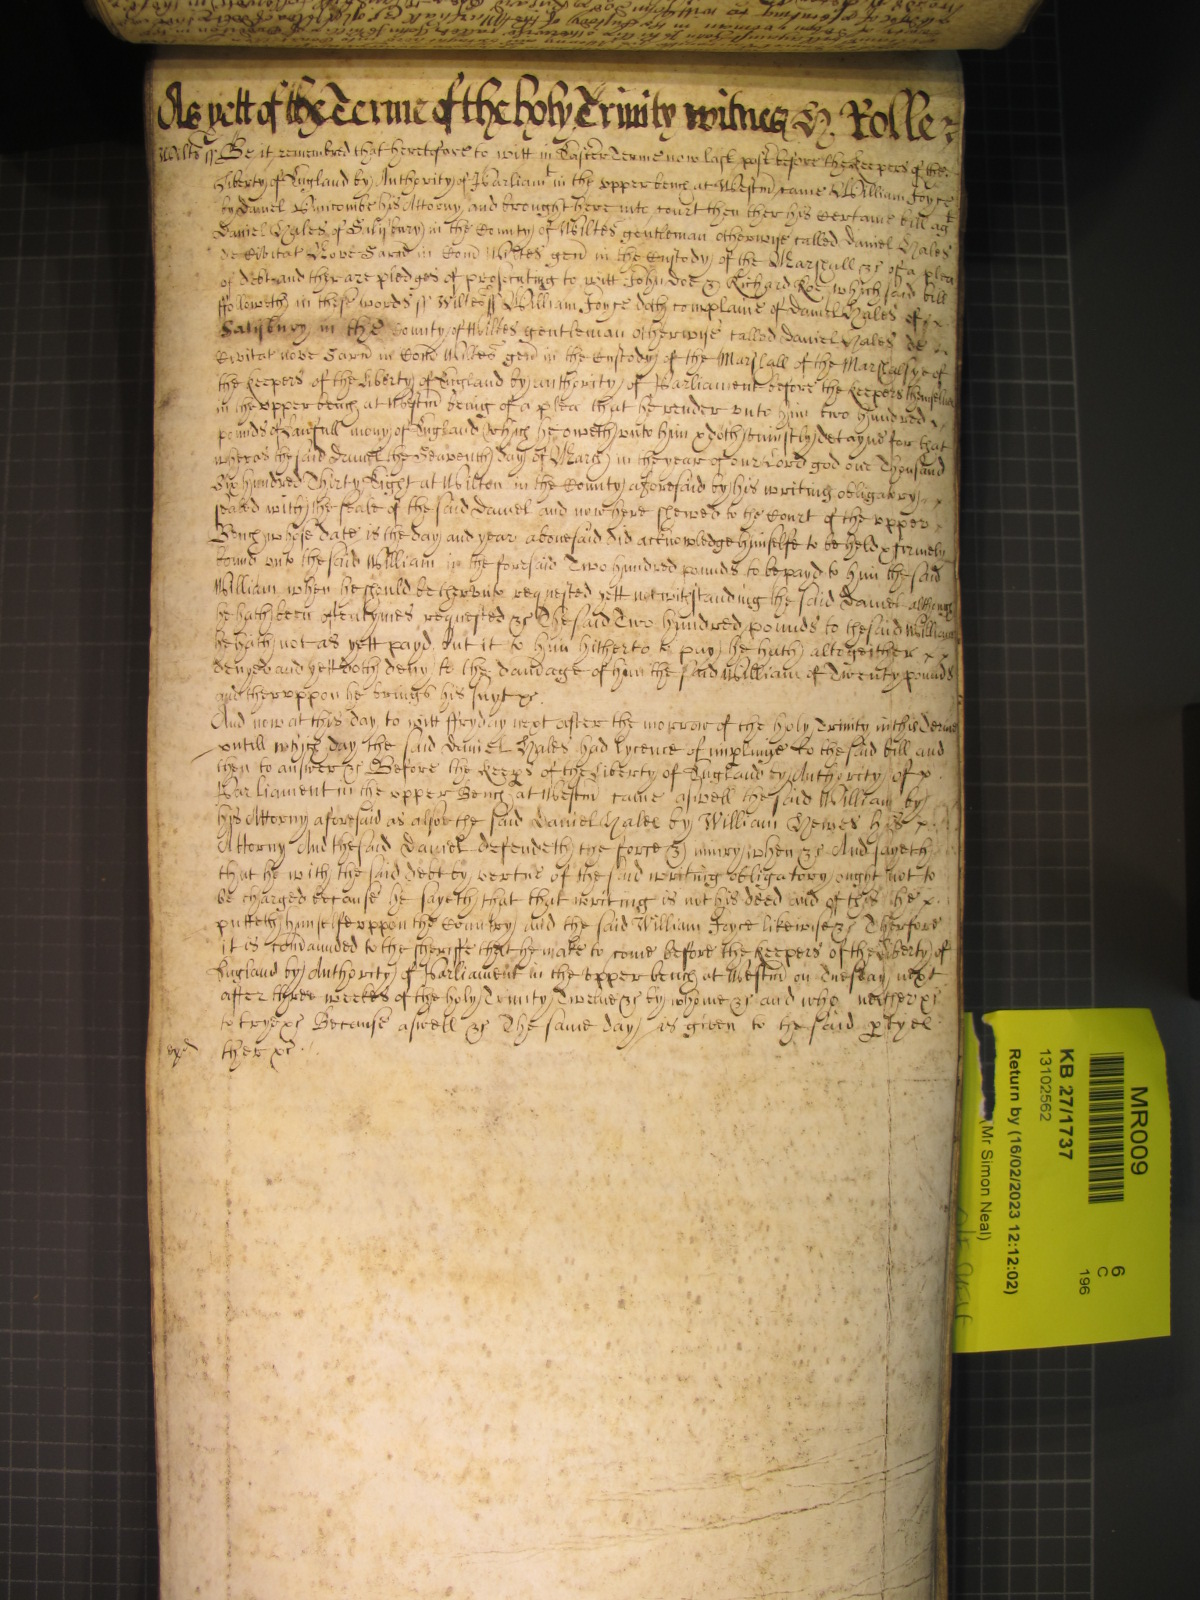 As yett of the Terme of the holy Trinity witnes H. Rolle
Wilts ss Be it remembred that heretofore to witt in Easter Terme now last past before the Keepers of the
Liberty of England by Authority of Parliamt in the upper bench at Westm came William Joyce
by Daniel his Attorny and brought here into Court then ther his Certaine bill agt
Daniel Hales of Salisbury in the County of Wiltes gentleman otherwise called Daniel Hales
de Civitat Nove Sarũ in Com Wiltes gen in the Custody of the Marshall &c of a plea
of debt and ther are pledges of prosecuting to witt John Doe & Richard Roe which said bill
ffolloweth in these words ss Wiltes ss William Joyce doth complaine of Daniel Hales of
Salisbury in the County of Wiltes gentleman otherwise called Daniel Hales de
Civitat nove Sarũ in Com Wiltes gen in the Custody of the Marshall of the Marshalsye of
the Keepers of the Liberty of England by authority of Parliament before the Keepers themselves
in the upper bench at Westm being of a plea that he render unto him two hundred
pounds of Lawfull mony of England which he oweth unto him & doth uniustly detayne for that
wheras the said Daniel the Seaventh day of March in the year of our Lord god one Thousand
Six hundred Thirty Eight at Wilton in the County aforesaid by his writing obligatory
sealed with the seale of the said Daniel and now here shewed to the Court of the upper
Bench whose date is the day and year abovesaid did acknowledge himselfe to be held & firmely
bound unto the said William in the foresaid Two hundred pounds to be payd to him the said
William when he should be therunto requested yett notwithstanding the said Daniel although
he hath been oftentymes requested &c The said Two hundred pounds to the said William
he hath not as yett payd but it to him hitherto to pay he hath altogeither x x
denyed and yett doth deny to the damage of him the said William of Twenty pounds
and theruppon he brings his suyt &c
And now at this day to witt ffryday next after the morrow of the Holy Trinity in this Terme
untill which day the said Daniel Hales had lycence of imparling to the said bill and
then to answer &c Before the Keeps of the Liberty of England by Authority of x
Parliament in the upper Bench at Westm came aswell the said William by
his Attorny aforesaid as also the said Daniel Hales by William Hewes his x
Attorny And the said Daniel defendeth the force & iniury when &c And sayeth
that he with the said debt by vertue of the said writing obligatory ought not to
be charged because he sayeth that that writing is not his deed and of this he x
putteth himselfe uppon the Country and the said William Joyce likewise &c Therfore
it is Comaunded to the sheriffe that he make to come before the Keepers of the Liberty of
England by Authority of Parliament in the upper bench at Westm on Tuesday next
after three weekes of the holy Trinity Twelve &c by whome &c and who neither &c
to trye &c Because aswell &c The same day is given to the said ptyes
ther &c
MR009
KB 27/1737
13102562
Return by (16/02/2023 12:12:02)
(Mr Simon Neal)
6
C
196